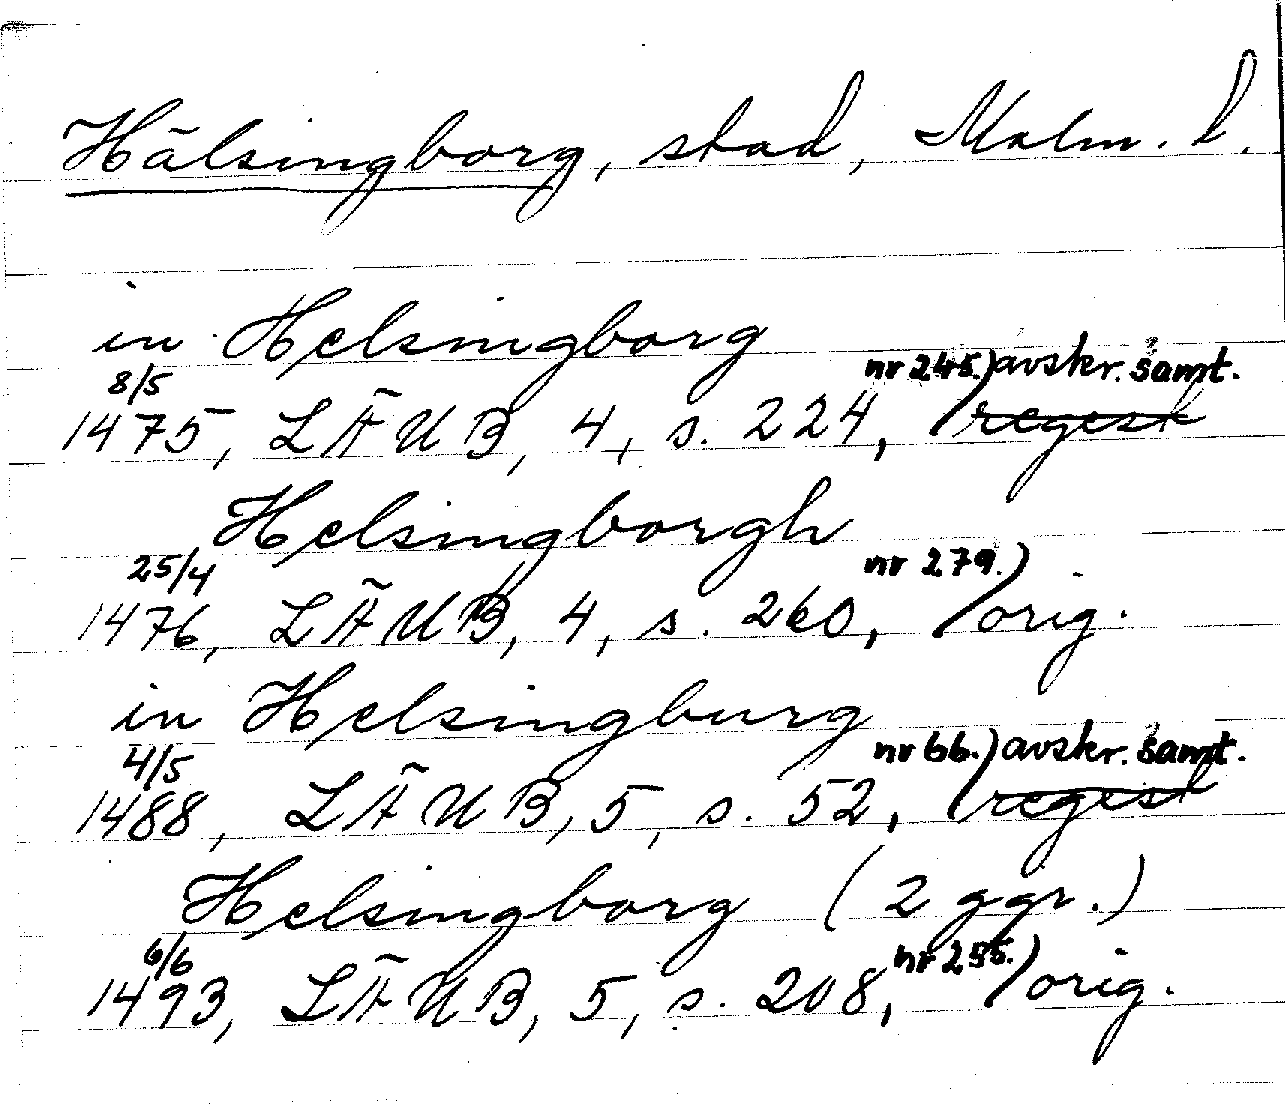 Hälsingborg, stad, Malm. l.
in Helsingborg
8/5 nr 245.) avskr. samt.
1475, LÄUB, 4, s. 224, regest
Helsingborgh
25/4 nr 279.)
1476, LÄUB, 4, s. 260, orig.
in Helsingburg
4/5 nr 66.) avskr. samt.
1488, LÄUB, 5, s. 52, regest
Helsingborg (2 ggr.)
6/6 nr 255.)
1493, LÄUB, 5, s. 208, orig.